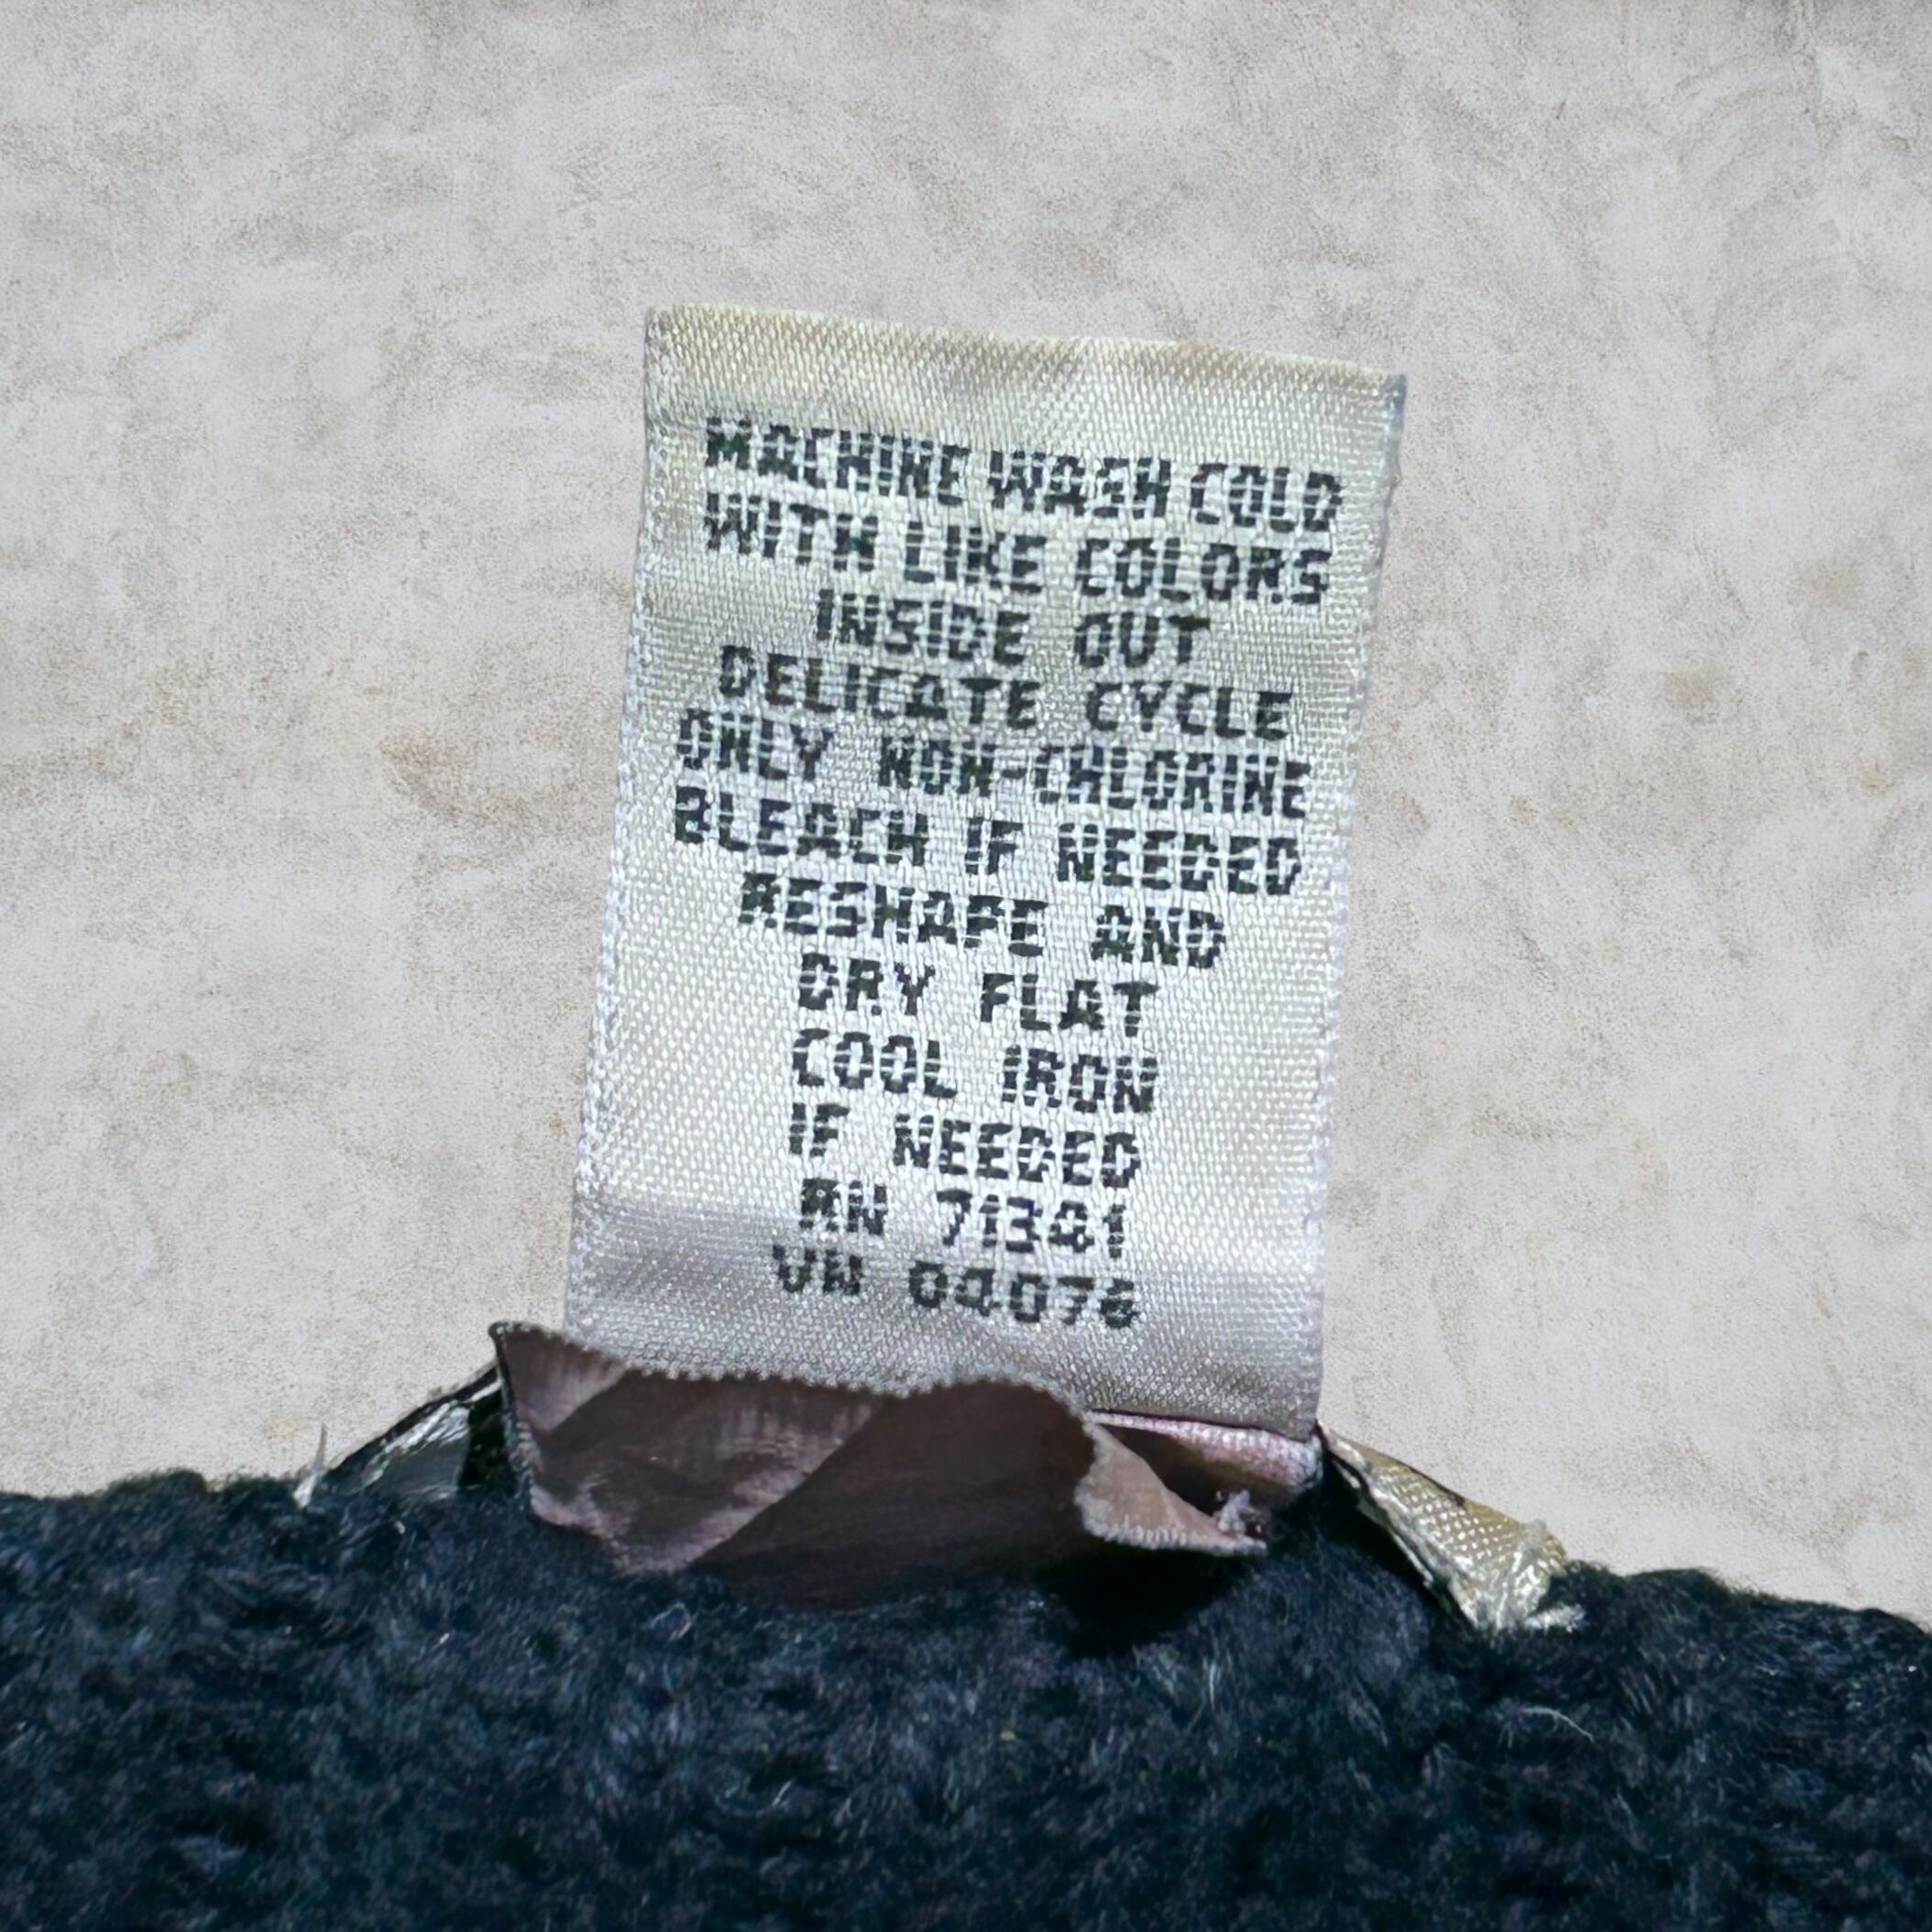 MACHINE WASH COLD
WITH LIKE COLORS
INSIDE OUT
DELICATE CYCLE
ONLY NON-CHLORINE
BLEACH IF NEEDED
RESHAPE AND
DRY FLAT
COOL IRON
IF NEEDED
RN 71341
VN 04076